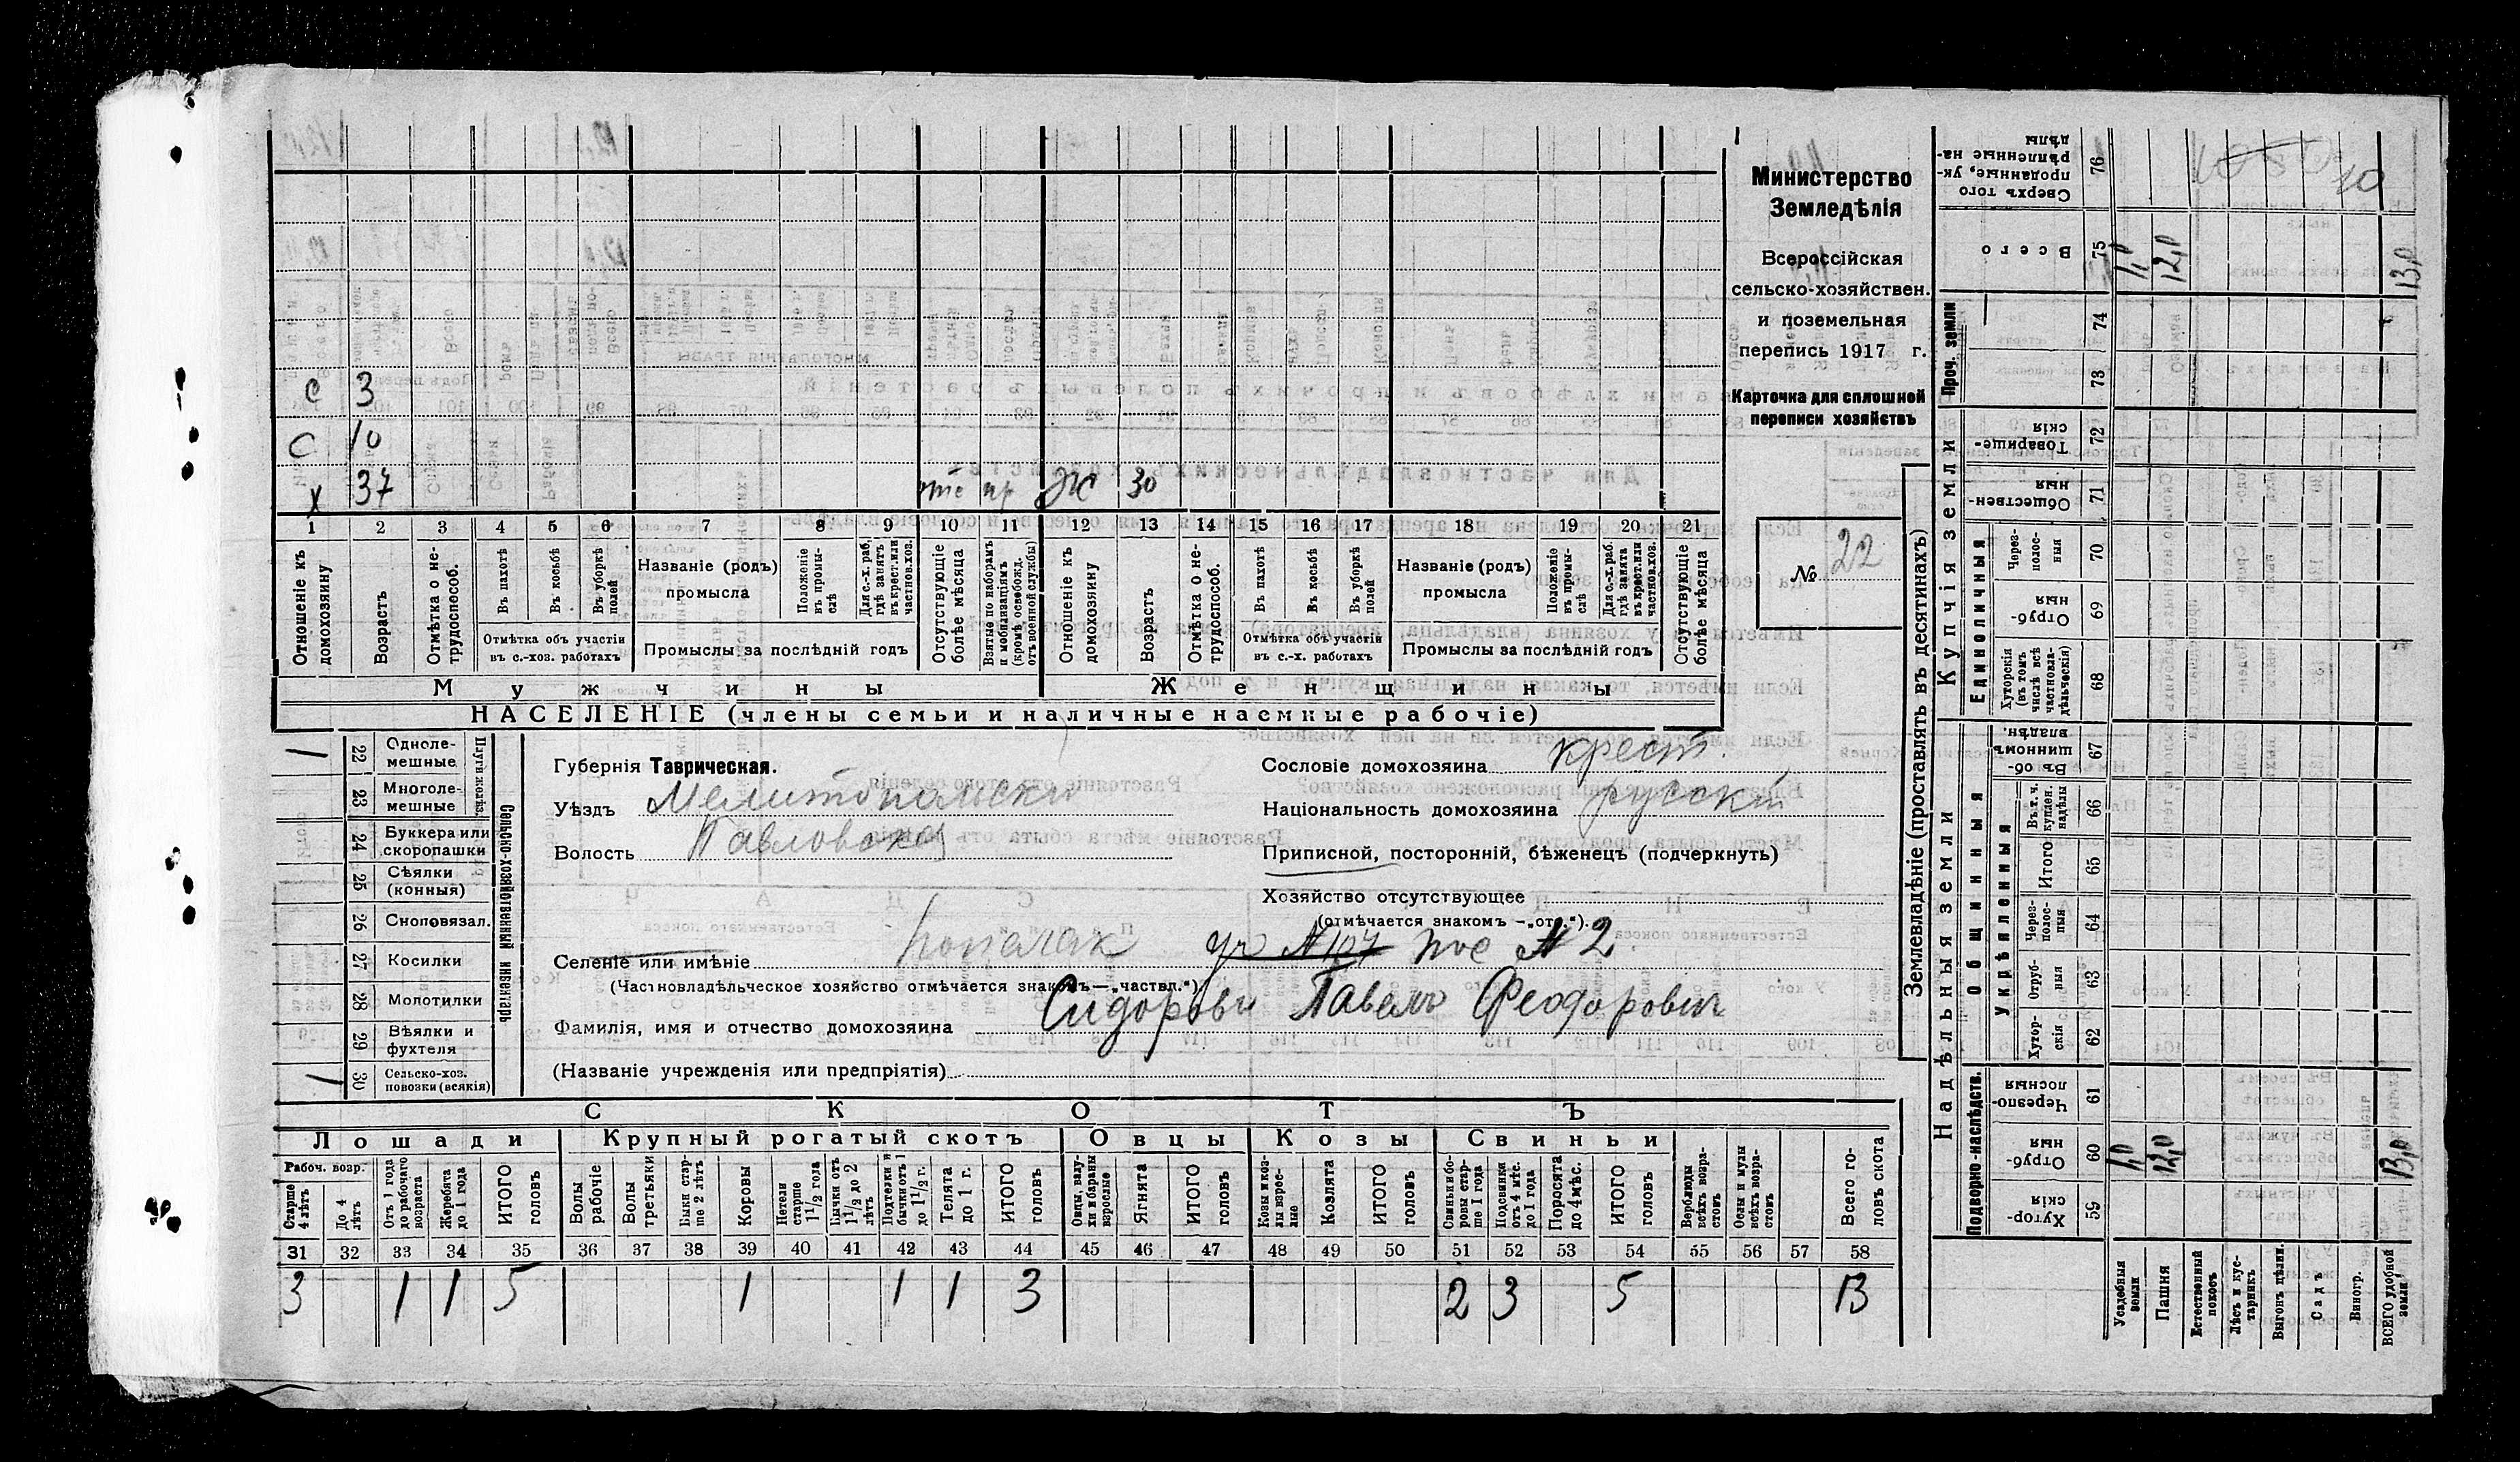 Министерство
Земледѣлія
Всероссійская
сельско-хозяйствен.
и поземельная
перепись 1917 г.
Карточка для сплошной
переписи хозяйствъ
№ 22
с 3
с 10
х 37 пр Ж 30
1 2 3 4 5 6 7 8 9 10 11 12 13 14 15 16 17 18 19 20 21
Отношеніе къ домохозяину
Возрастъ
Отмѣтка о не-трудоспособ.
Въ пахотѣ
Въ косьбѣ
Въ уборкѣ полей
Отмѣтка объ участіи въ с.-хоз. работахъ
Названіе (родъ) промысла
Положеніе въ промы-слѣ
Для с.-х. раб. гдѣ занятъ въ крест. или частнов. хоз.
Промыслы за послѣдній годъ
Отсутствующіе болѣе мѣсяца
Взятые по наборамъ и мобилизаціямъ (кромѣ освобожд. отъ военной службы)
Отношеніе къ домохозяину
Возрастъ
Отмѣтка о не-трудоспособ.
Въ пахотѣ
Въ косьбѣ
Въ уборкѣ полей
Отмѣтка объ участіи въ с.-х. работахъ
Названіе (родъ) промысла
Положеніе въ промы-слѣ
Для с.-х. раб. гдѣ занята въ крест. или частнов. хоз.
Промыслы за послѣдній годъ
Отсутствующіе болѣе мѣсяца
Мужчины Женщины
НАСЕЛЕНІЕ (члены семьи и наличные наемные рабочіе)
Сельско-хозяйственный инвентарь
22 Одноле-мешные
23 Многоле-мешные
24 Буккера или скоропашки
25 Сѣялки (конныя)
26 Сноповязал.
27 Косилки
28 Молотилки
29 Вѣялки и фухтеля
30 Сельско-хоз. повозки (всякія)
Губернія Таврическая.
Уѣздъ Мелитопольскій
Волость Павловская
Селеніе или имѣніе Копелак уч № 107 пос № 2
(Частновладѣльческое хозяйство отмѣчается знакомъ—„частвл.“)
Фамилія, имя и отчество домохозяина Сидоровъ Павелъ Феодоровичъ
(Названіе учрежденія или предпріятія)
Сословіе домохозяина крест.
Національность домохозяина русскій
Приписной, посторонній, бѣженецъ (подчеркнуть)
Хозяйство отсутствующее
(отмѣчается знакомъ —„от.“).
СКОТЪ
Лошади Крупный рогатый скотъ Овцы Козы Свиньи
Рабоч. возр.
Старше 4 лѣтъ
До 4 лѣтъ
Отъ 1 года до рабочаго возраста
Жеребята до 1 года
ИТОГО головъ
Волы рабочіе
Волы третьяки
Быки стар-ше 2 лѣтъ
Коровы
Нетели старше 1 1/2 года
Бычки отъ 1 1/2 до 2 лѣтъ
Подтелки и бычки отъ 1 до 1 1/2 г.
Телята до 1 г.
ИТОГО головъ
Овцы, валу-хи и бараны взрослые
Ягнята
ИТОГО головъ
Козы и коз-лы взрос-лые
Козлята
ИТОГО головъ
Свиньи и бо-ровы стар-ше 1 года
Подсвинки отъ 4 мѣс. до 1 года
Поросята до 4 мѣс.
ИТОГО головъ
Верблюды всѣхъ возра-стовъ
Ослы и мулы всѣхъ возра-стовъ
Всего го-ловъ скота
31 32 33 34 35 36 37 38 39 40 41 42 43 44 45 46 47 48 49 50 51 52 53 54 55 56 57 58
3 1 1 5 1 1 1 3 2 3 5 13
Землевладѣніе (проставлять въ десятинахъ)
Надѣльныя земли
Купчія земли
Проч. земли
Подворно-наслѣдств.
Общинныя
Укрѣпленныя
Единоличныя
Сверхъ того проданные, ук-рѣпленные на-дѣлы 76
Всего 75 1,0 12,0 13,0
74
73
Товарище-скія 72
Обществен-ныя 71
Через-полос-ныя 70
Отруб-ныя 69
Хуторскія (въ томъ числѣ всѣ частновла-дѣльческія) 68
Въ об-щинномъ владѣн. 67
В. т. ч. куплен. надѣлы 66
Итого 65
Через-полос-ныя 64
Отруб-ныя 63
Хутор-скія 62
Черезпо-лосныя 61
Отруб-ныя 60 1,0 12,0 13,0
Хутор-скія 59
Усадебныя земли
Пашня
Естественный покосъ
Лѣсъ и кус-тарникъ
Выгонъ цѣлин.
Садъ
Виногр.
ВСЕГО удобной земли